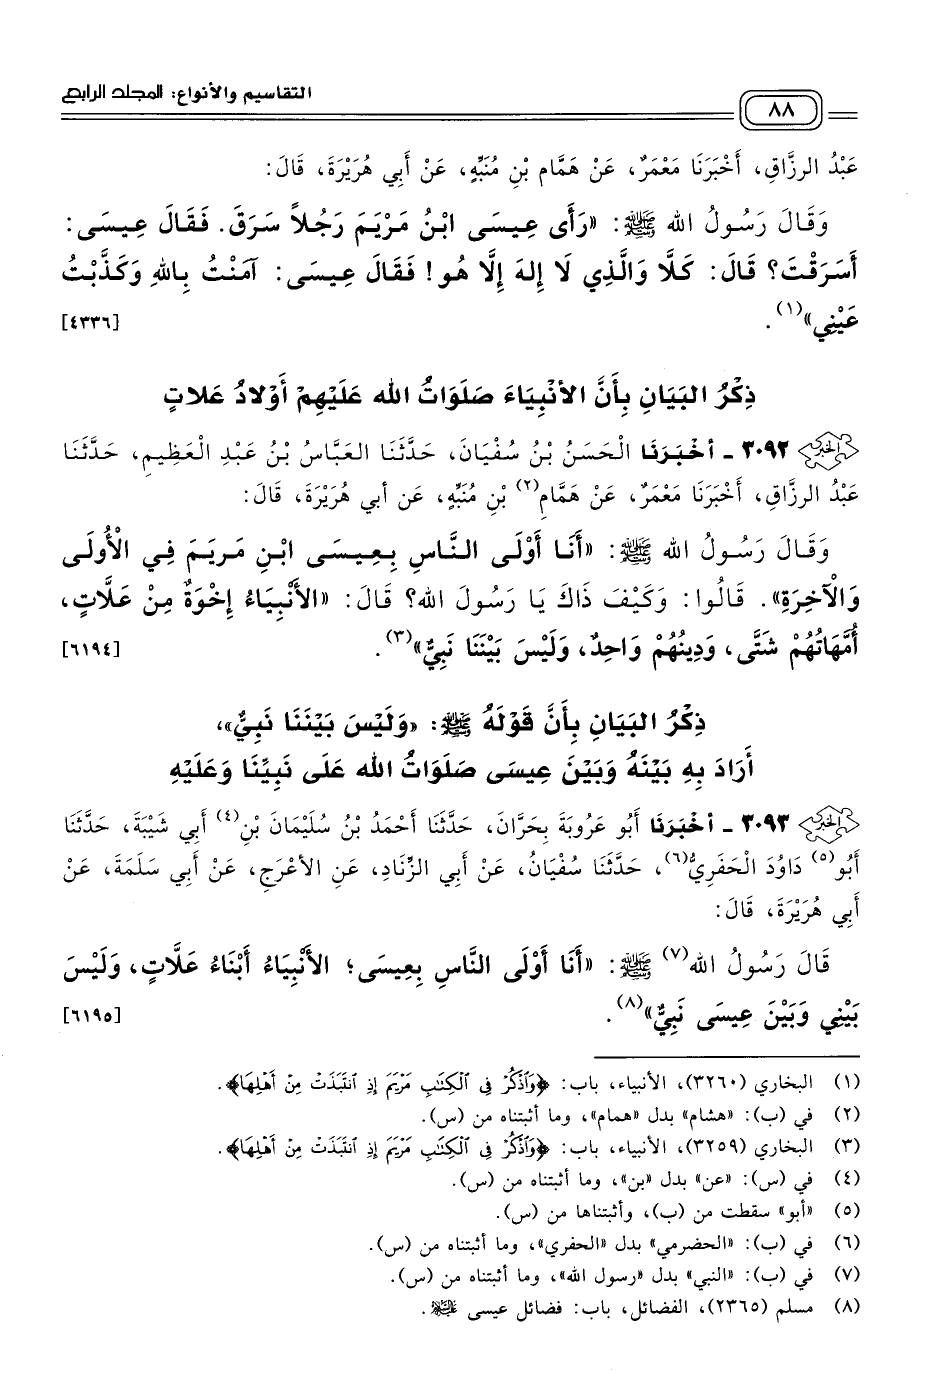 التقاسيم والأنواع: المجلد الرابع
٨٨
عَبْدُ الرزَّاقِ، أَخْبَرَنَا مَعْمَرٌ، عَنْ هَمَّام بْنِ مُنَبِّهٍ، عَنْ أَبِي هُرَيْرَةَ، قَالَ:
وَقَالَ رَسُولُ الله ﷺ: «رَأَى عِيسَى ابْنُ مَرْيَمَ رَجُلاً سَرَقَ. فَقَالَ عِيسَى:
أَسَرَقْتَ؟ قَالَ: كَلَّا وَالَّذِي لَا إِلهَ إِلَّا هُو! فَقَالَ عِيسَى: آمَنْتُ بِاللهِ وَكَذَّبْتُ
عَيْنِي»(١). [٤٣٣٦]
ذِكْرُ البَيَانِ بِأَنَّ الأَنْبِيَاءَ صَلَوَاتُ الله عَلَيْهِمْ أَوْلادُ عَلاتٍ
الخبر ٣٠٩٢ - أخْبَرَنَا الْحَسَنُ بْنُ سُفْيَانَ، حَدَّثَنَا العَبَّاسُ بْنُ عَبْدِ الْعَظِيمِ، حَدَّثَنَا
عَبْدُ الرزَّاقِ، أَخْبَرَنَا مَعْمَرٌ، عَنْ هَمَّامِ(٢) بْنِ مُنَبِّهٍ، عَن أبي هُرَيْرَةَ، قَالَ:
وَقَالَ رَسُولُ الله ﷺ: «أَنَا أَوْلَى النَّاسِ بِعِيسَى ابْنِ مَريَمَ فِي الْأُولَى
وَالْآخِرَةِ». قَالُوا: وَكَيْفَ ذَاكَ يَا رَسُولَ الله؟ قَالَ: «الأَنْبِيَاءُ إخْوَةٌ مِنْ عَلَّاتٍ،
أُمَّهَاتُهُمْ شَتَّى، وَدِينُهُمْ وَاحِدٌ، وَلَيْسَ بَيْنَنَا نَبِيٌّ»(٣). [٦١٩٤]
ذِكْرُ البَيَانِ بِأَنَّ قَوْلَهُ ﷺ: «وَلَيْسَ بَيْنَنَا نَبِيٌّ»،
أَرَادَ بِهِ بَيْنَهُ وَبَيْنَ عِيسَى صَلَوَاتُ الله عَلَى نَبِيِّنَا وَعَلَيْهِ
الخبر ٣٠٩٣ - أخْبَرَنَا أَبُو عَرُوبَةَ بِحَرَّانَ، حَدَّثَنَا أَحْمَدُ بْنُ سُلَيْمَانَ بْنِ(٤) أَبِي شَيْبَةَ، حَدَّثَنَا
أَبُو(٥) دَاوُدَ الْحَفَرِيُّ(٦)، حَدَّثَنَا سُفْيَانُ، عَنْ أَبِي الزِّنَادِ، عَنِ الأعْرَجِ، عَنْ أَبِي سَلَمَةَ، عَنْ
أَبِي هُرَيْرَةَ، قَالَ:
قَالَ رَسُولُ الله(٧) ﷺ: «أَنَا أَوْلَى النَّاسِ بِعِيسَى؛ الأَنْبِيَاءُ أَبْنَاءُ عَلَّاتٍ، وَلَيْسَ
بَيْنِي وَبَيْنَ عِيسَى نَبِيٌّ»(٨). [٦١٩٥]
(١) البخاري (٣٢٦٠)، الأنبياء، باب: ﴿وَاذْكُرْ فِي الْكِتَابِ مَرْيَمَ إِذِ انتَبَذَتْ مِنْ أَهْلِهَا﴾.
(٢) في (ب): «هشام» بدل «همام»، وما أثبتناه من (س).
(٣) البخاري (٣٢٥٩)، الأنبياء، باب: ﴿وَاذْكُرْ فِي الْكِتَابِ مَرْيَمَ إِذِ انتَبَذَتْ مِنْ أَهْلِهَا﴾.
(٤) في (س): «عن» بدل «بن»، وما أثبتناه من (س).
(٥) «أبو» سقطت من (ب)، وأثبتناها من (س).
(٦) في (ب): «الحضرمي» بدل «الحفري»، وما أثبتناه من (س).
(٧) في (ب): «النبي» بدل «رسول الله»، وما أثبتناه من (س).
(٨) مسلم (٢٣٦٥)، الفضائل، باب: فضائل عيسى عليه السلام.